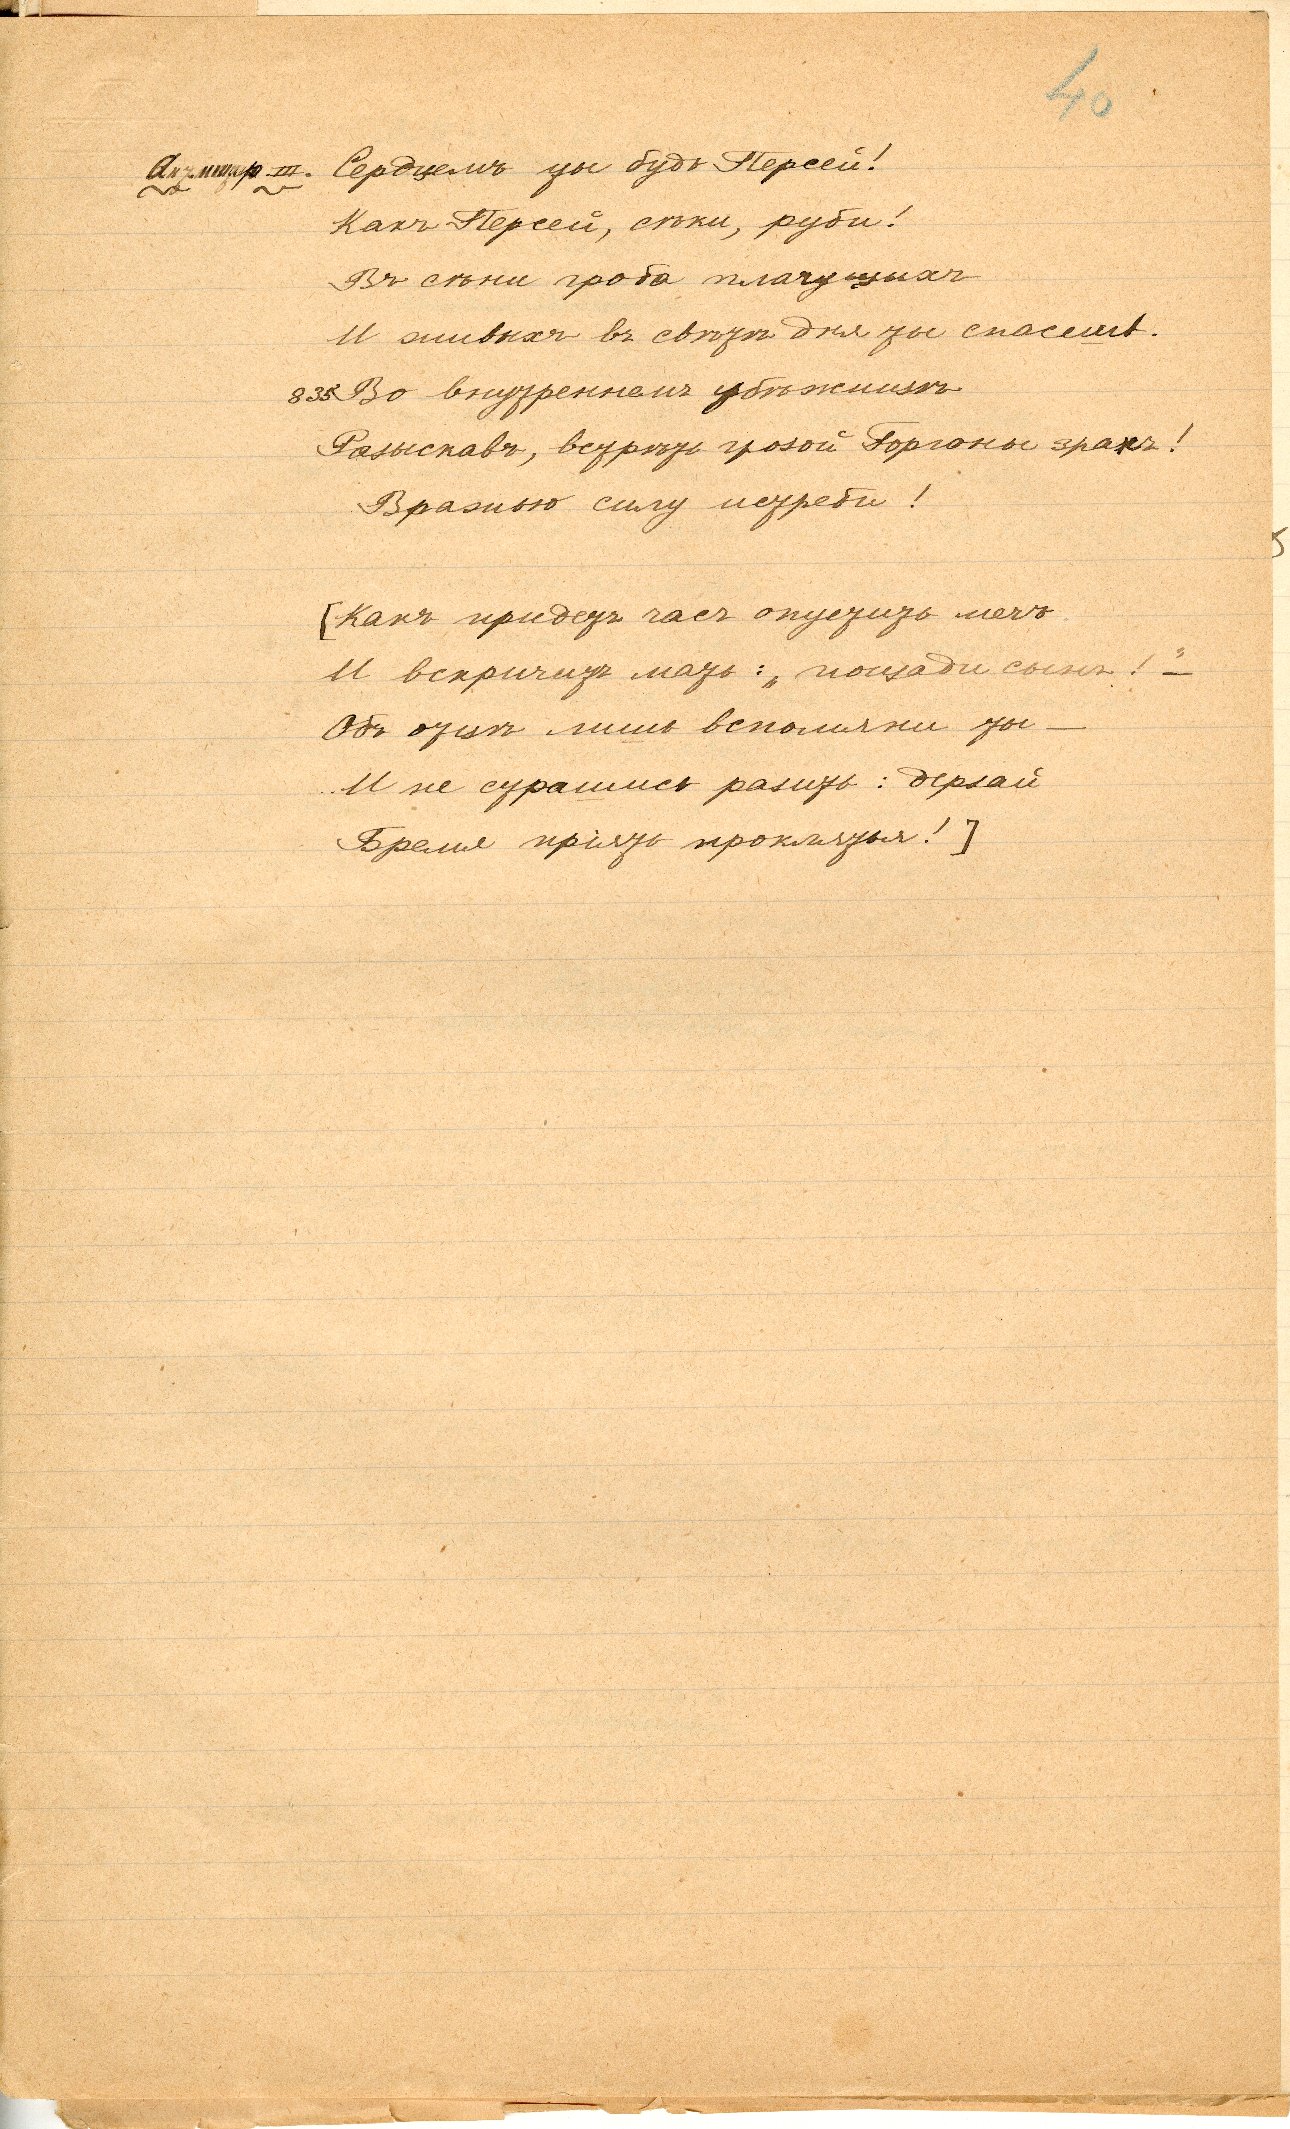 40
Антистр. III. Сердцемъ ты будь Персей!
Какъ Персей, сѣки, руби!
Въ сѣни гроба плачущихъ
И живыхъ въ свѣтѣ дня ты спасешь.
835 Во внутреннемъ убѣжищѣ
Разыскавъ, встрѣть грозой Горгоны зракъ!
Вражью силу истреби!
[Какъ придетъ часъ опустить мечъ
И вскричитъ мать: „пощади сынъ!" —
Объ отцѣ лишь вспомяни ты —
И не страшись разить: дерзай
Бремя пріять проклятья!]